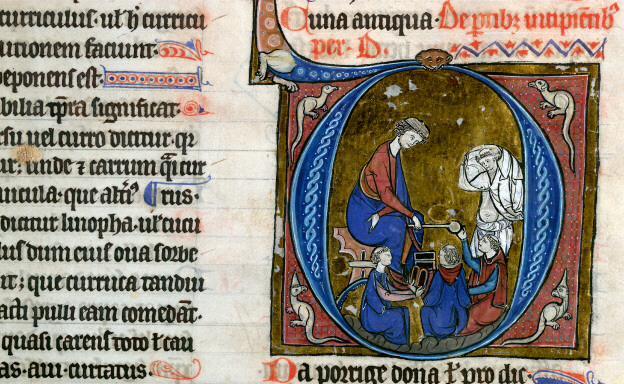 curriculus· ul' ꝙ curricu
utionem faciunt·
eponens est·
bilia tp̄ra significat·
su uel curro dicitur· qr
ur; unde ⁊ carrum
uicula· que alt'o rus·
dicitur linopha· ul' cucu
lus dum eius oua sorbe
nt; que curruca tandiu
acti pulli eam comedāt·
quasi carens toto ł cau
as· aui· curtatus·
Cuna antiqua· De ꝑtibꝫ
per· D·
Da porrige dona ł pro dic·